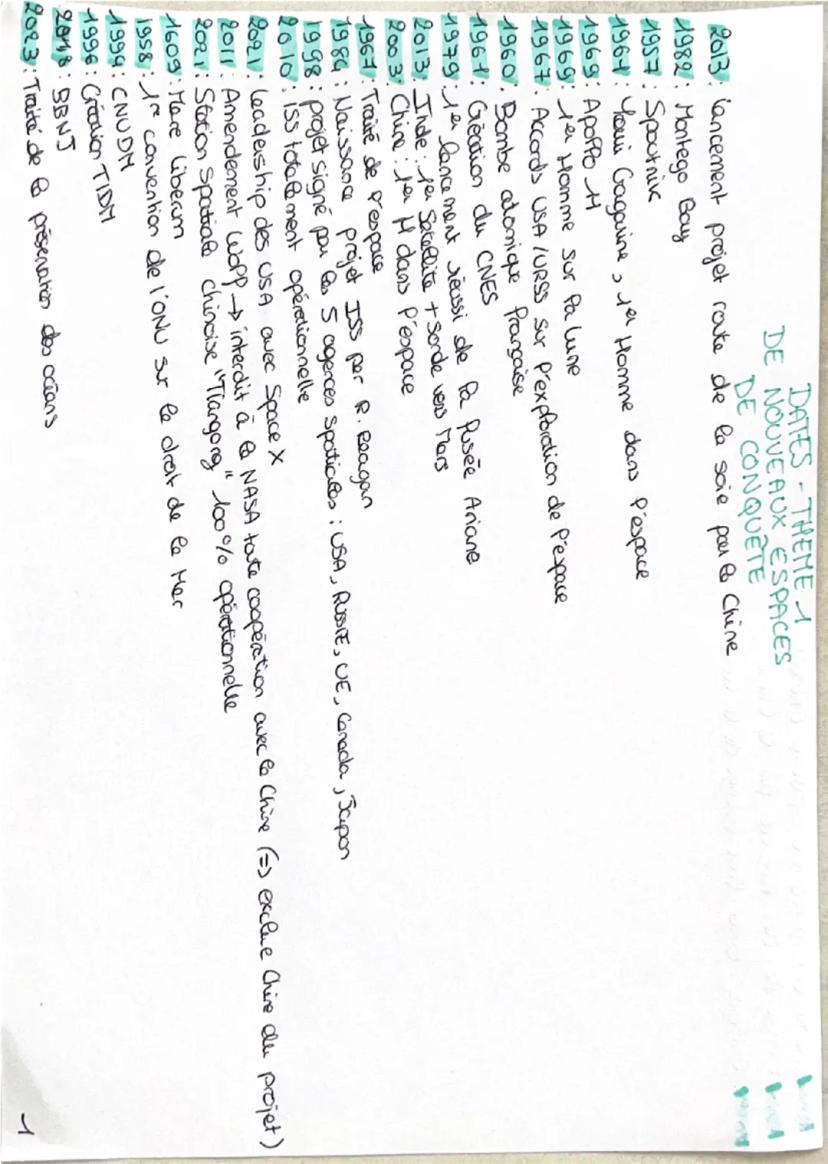 DATES - THEME 1
DE NOUVEAUX ESPACES
DE CONQUÊTE
2013: lancement projet route de la soie par la Chine
1982: Montego Bay
1957: Spoutnik
1961: Youri Gagarine, 1er Homme dans l'espace
1969: Apollo 11
1969: 1er Homme sur la lune
1967: Accords USA/URSS sur l'exploration de l'espace
1960: Bombe atomique française
1961: Création du CNES
1979: 1er lancement réussi de la fusée Ariane
2013: Inde: 1er Satellite + sonde vers Mars
2003: Chine: 1er H dans l'espace
1967: Traité de l'espace
1984: Naissance projet ISS par R. Reagan
1998: projet signé par les 5 agences spatiales: USA, Russie, UE, Canada, Japon
2010: ISS totalement opérationnelle
2021: Leadership des USA avec Space X
2011: Amendement Wolf → interdit à la NASA toute coopération avec la Chine (=> exclue Chine du projet)
2021: Station spatiale chinoise "Tiangong" 100% opérationnelle
1609: Mare Liberum
1958: 1re convention de l'ONU sur le droit de la Mer
1994: CNUDM
1996: Création TIDM
2018: BBNJ
2023: Traité de la préservation des océans
1